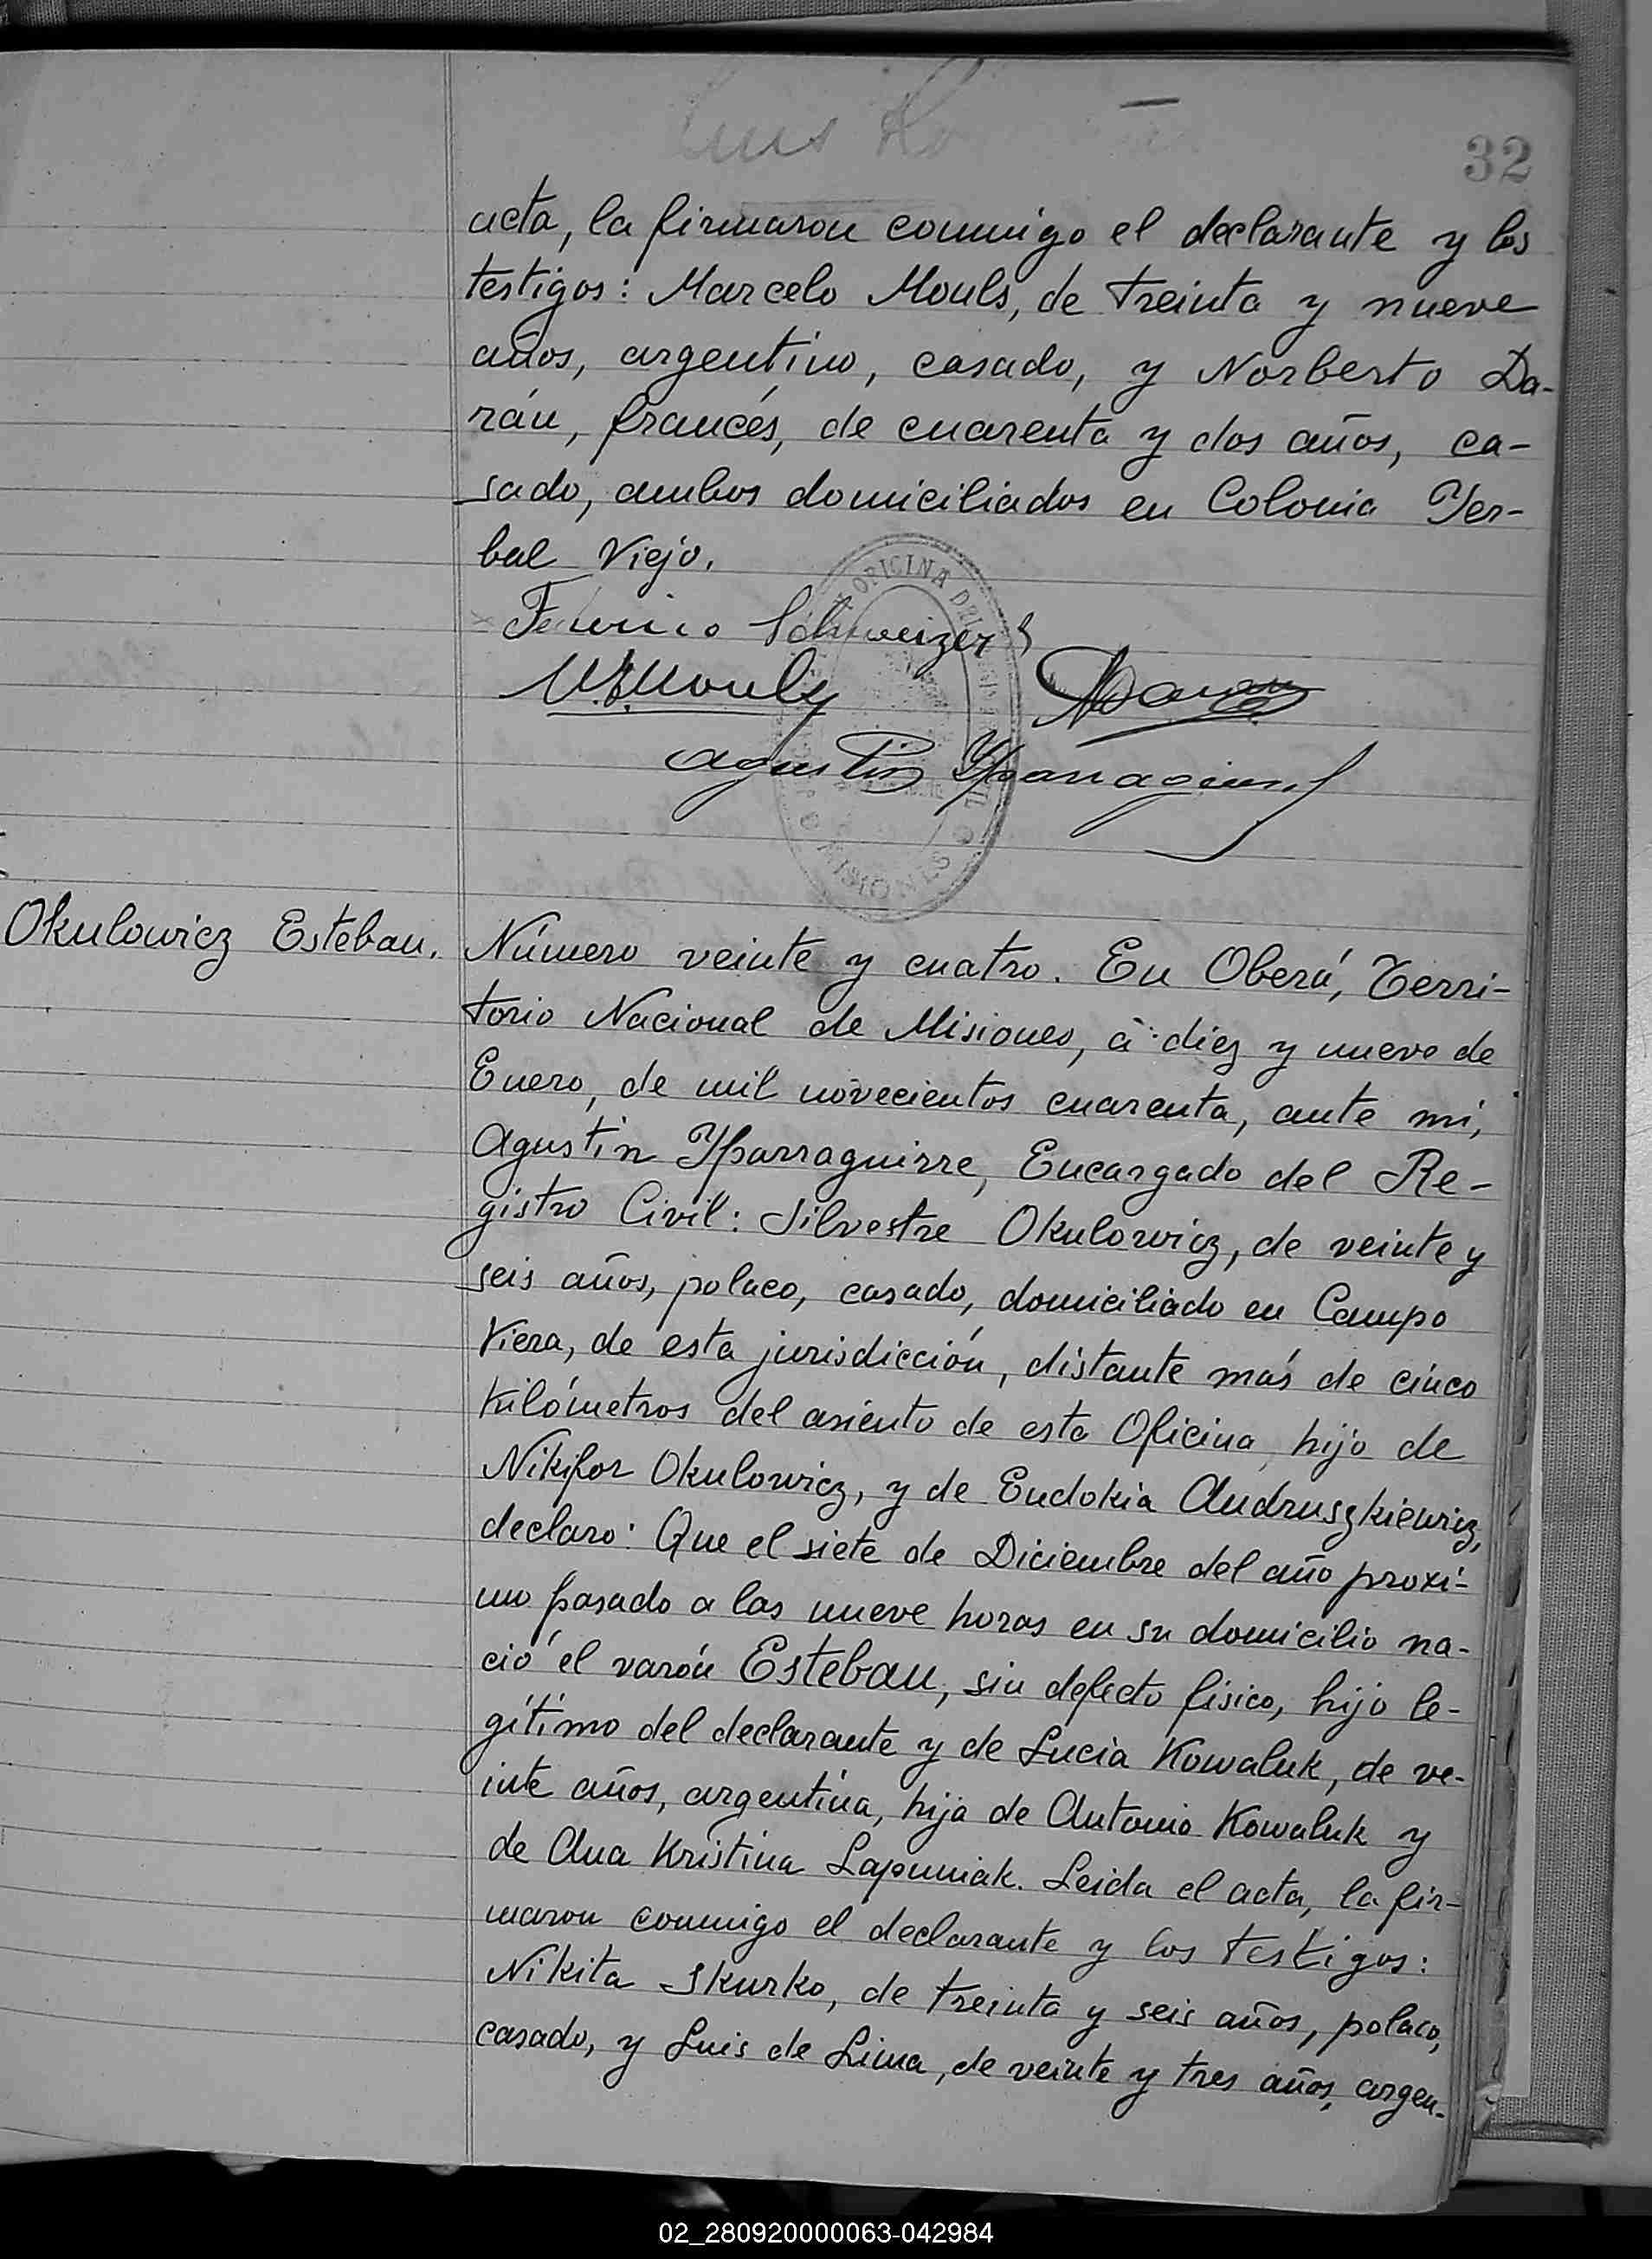 Luis
32
acta, la firmaron conmigo el declarante y los
testigos: Marcelo Mouls, de treinta y nueve
años, argentino, casado, y Norberto Da-
rán, francés, de cuarenta y dos años, ca-
sado, ambos domiciliados en Colonia Yer-
bal Viejo.
Federico Schweizer
OFICINA DEL
MISIONES
Okulowicz Esteban.
Número veinte y cuatro. En Oberá, Terri-
torio Nacional de Misiones, à diez y nueve de
Enero, de mil novecientos cuarenta, ante mí,
Agustín Yparraguirre, Encargado del Re-
gistro Civil: Silvestre Okulowicz, de veinte y
seis años, polaco, casado, domiciliado en Campo
Viera, de esta jurisdicción, distante más de cinco
kilómetros del asiento de esta Oficina, hijo de
Nikifor Okulowicz, y de Eudokia Andruszkiewicz,
declaro: Que el siete de Diciembre del año proxi-
mo pasado a las nueve horas en su domicilio na-
ció el varón Esteban, sin defecto físico, hijo le-
gítimo del declarante y de Lucia Kowaluk, de ve-
inte años, argentina, hija de Antonio Kowaluk y
de Ana Kristina Lapuniak. Leida el acta, la fir-
maron conmigo el declarante y los testigos:
Nikita Skurko, de treinta y seis años, polaco,
casado, y Luis de Lima, de veinte y tres años, argen-
02_280920000063-042984